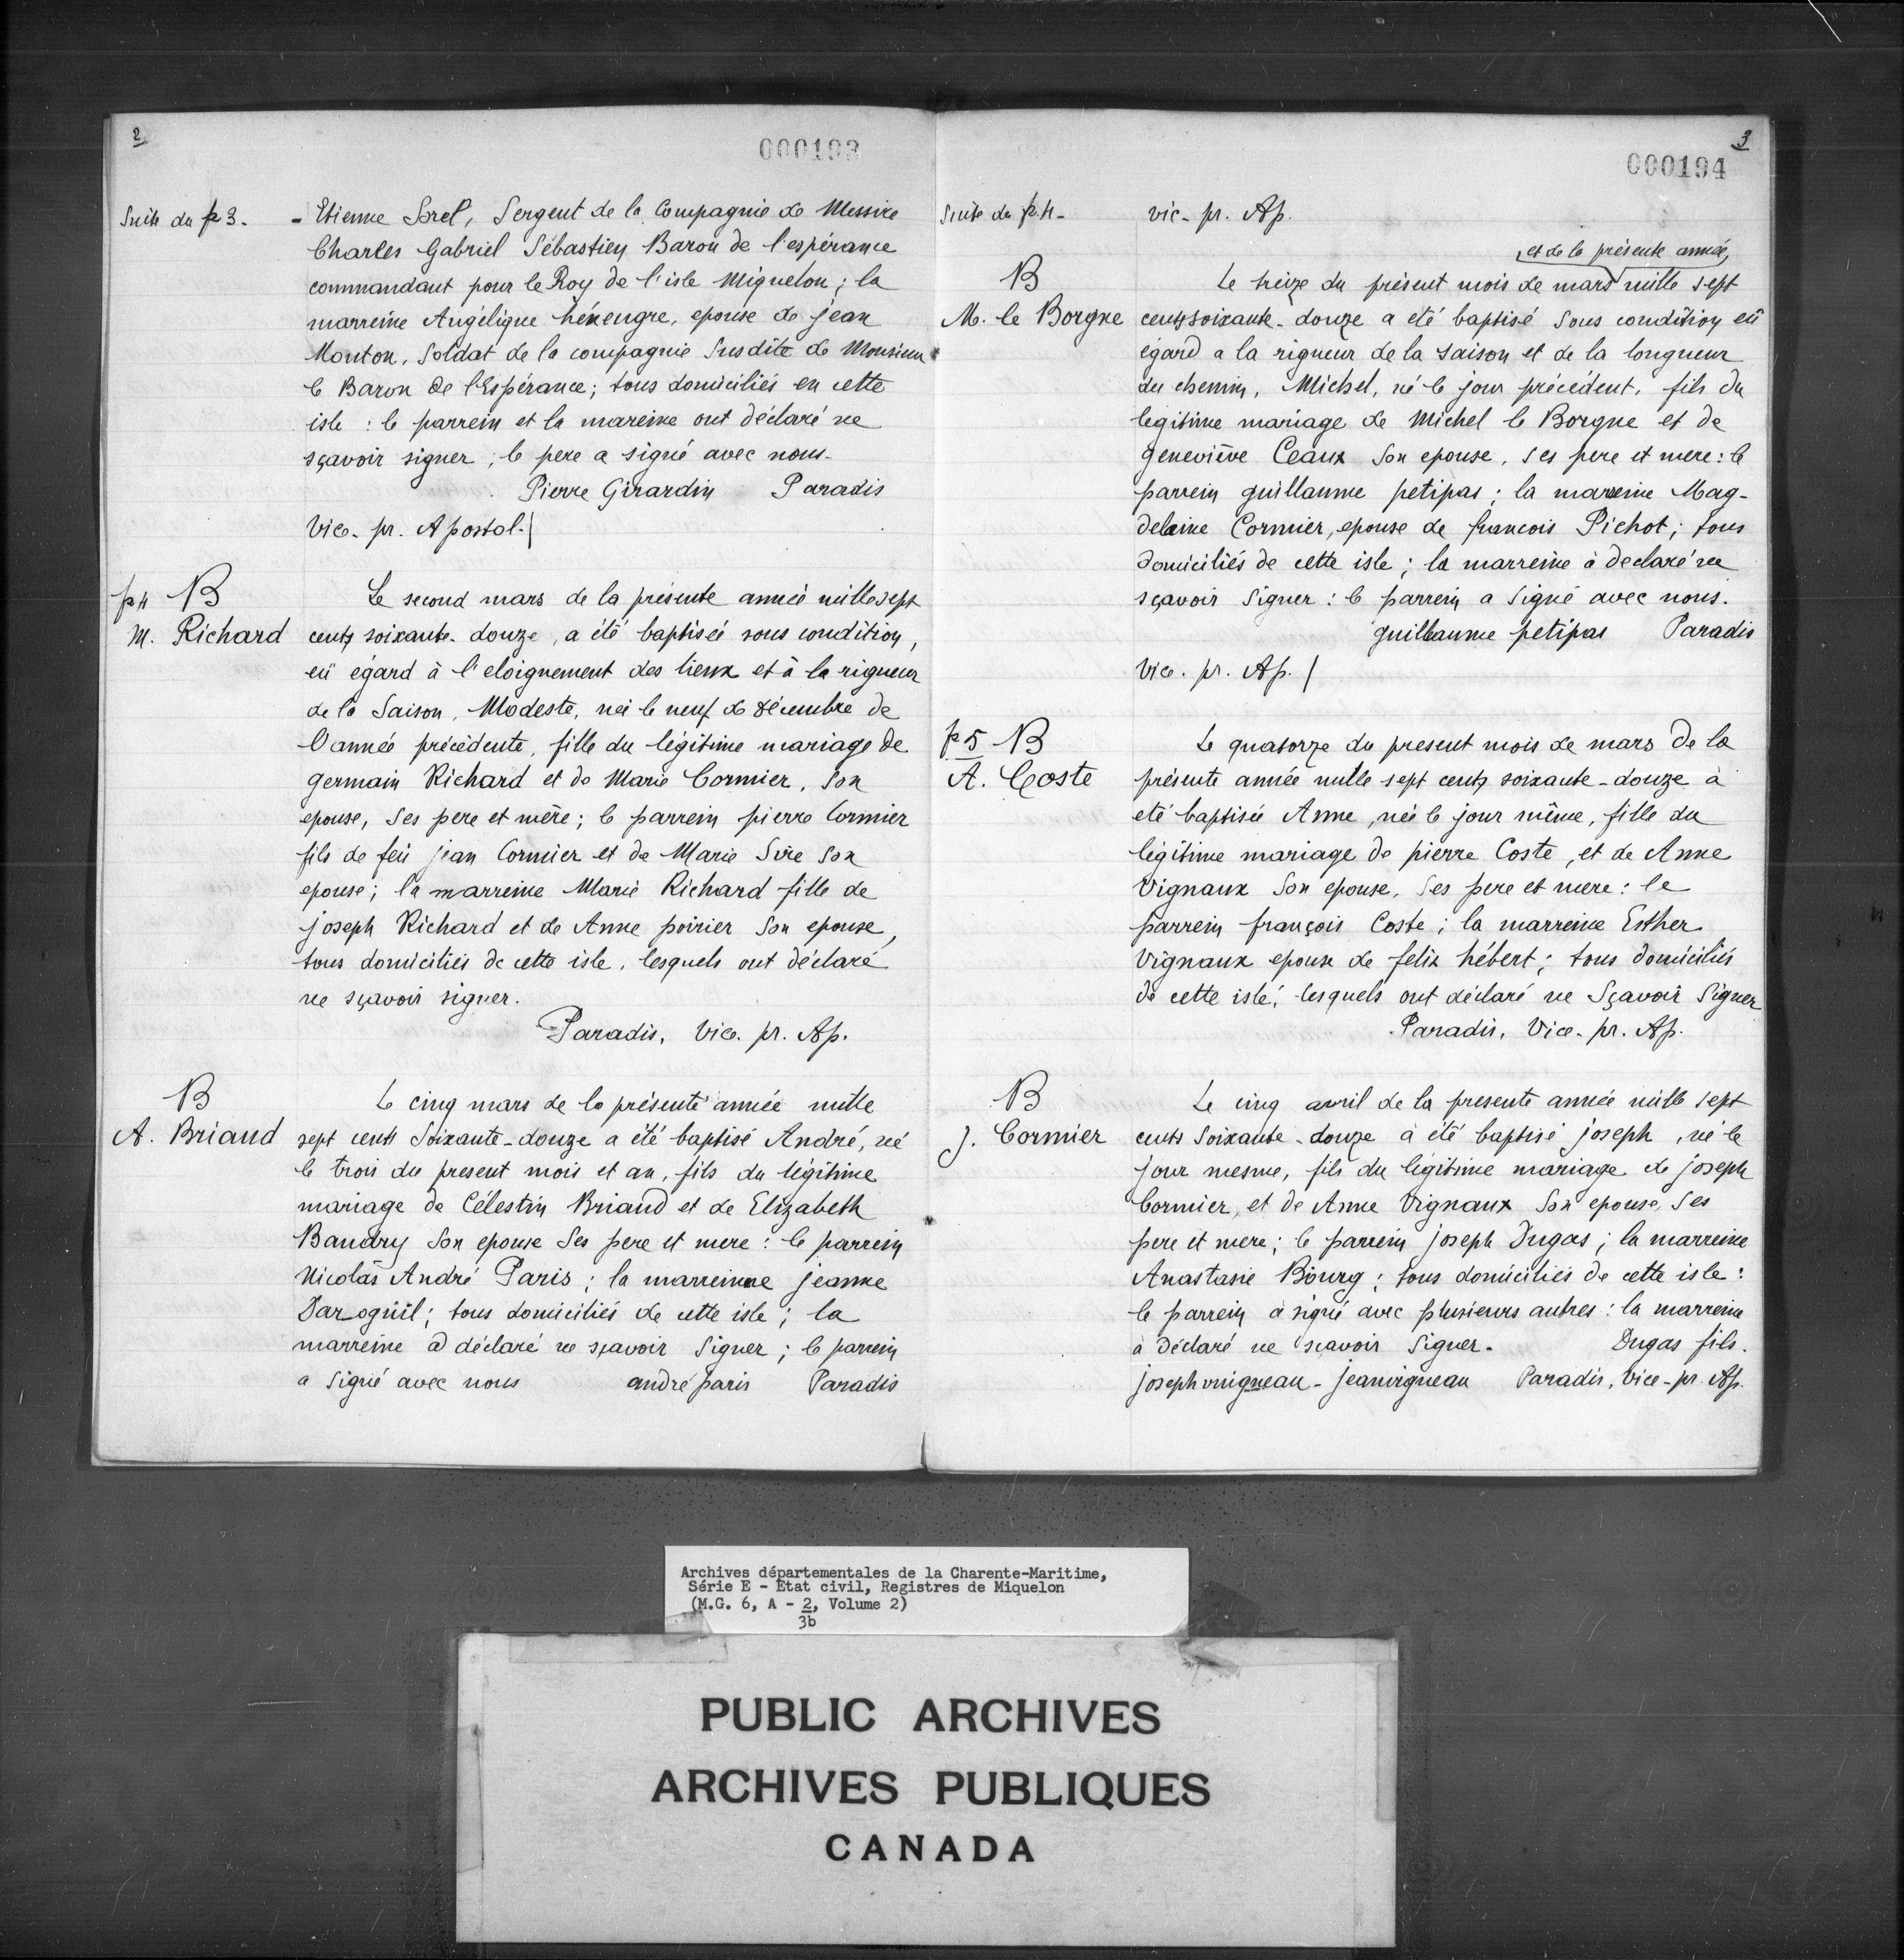 2
000193
Suite du p 3. - Etienne Sorel, Sergent de la Compagnie de Messire
Charles Gabriel Sébastien Baron de l'espérance
commandant pour le Roy de l'isle Miquelon ; la
marreine Angélique hénengre, epouse de jean
Monton, Soldat de la compagnie Susdite de Monsieur
le Baron de l'Espérance ; tous domiciliés en cette
isle : le parrein et la mareine ont déclaré ne
sçavoir signer ; le pere a signé avec nous.
Pierre Girardin Paradis
Vice. pr. Apostol. /
p 4 B
M. Richard
Le second mars de la présente année mille sept
cents soixante-douze, a été baptisée sous condition,
eü égard à l'eloignement des lieux et à la rigueur
de la Saison, Modeste, née le neuf de décembre de
l'année précédente, fille du légitime mariage de
germain Richard et de Marie Cormier, son
epouse, Ses pere et mère ; le parrein pierre Cormier
fils de feü jean Cormier et de Marie Sire Son
epouse ; la marreine Marie Richard fille de
joseph Richard et de Anne poirier Son epouse,
tous domiciliés de cette isle, lesquels ont déclaré
ne sçavoir signer.
Paradis, Vice. pr. Ap.
B
A. Briand
Le cinq mars de la présente année mille
sept cents Soixante-douze a été baptisé André, né
le trois du present mois et an, fils du légitime
mariage de Célestin Briand et de Elizabeth
Baudry Son epouse Ses pere et mere : le parrein
Nicolas André Paris ; la marreinne jeanne
Daroguil ; tous domiciliés de cette isle ; la
marreine a déclaré ne sçavoir Signer ; le parrein
a Signé avec nous andré paris Paradis
3
000194
Suite du p. 4 - vic. pr. Ap.
, et de la présente année,
B
M. le Borgne
Le treize du présent mois de mars mille sept
cents soixante-douze a eté baptisé Sous condition eü
égard a la rigueur de la saison et de la longueur
du chemin, Michel, né le jour précédent, fils du
legitime mariage de Michel le Borgne et de
geneviève Ceaux Son epouse, ses pere et mere : le
parrein guillaume petipas ; la marreine Mag-
delaine Cormier, epouse de francois Pichot ; tous
domiciliés de cette isle ; la marreine à declaré ne
sçavoir Signer : le parrein a Signé avec nous.
guillaume petipas Paradis
Vic. pr. Ap. /
p 5 B
A. Coste
Le quatorze du present mois de mars de la
présente année mille sept cents soixante-douze à
eté baptisée Anne, née le jour même, fille du
légitime mariage de pierre Coste, et de Anne
Vignaux Son epouse, Ses pere et mere : le
parrein françois Coste ; la marreine Esther
Vignaux epouse de felix hébert ; tous domiciliés
de cette isle, lesquels ont déclaré ne Sçavoir Signer
Paradis, Vice. pr. Ap.
B
J. Cormier
Le cinq avril de la presente année mille sept
cents Soixante-douze à été baptisé joseph, né le
jour mesme, fils du légitime mariage de joseph
Cormier, et de Anne Vignaux Son epouse, Ses
pere et mere ; le parrein joseph Dugas ; la marreine
Anastasie Bourg ; tous domiciliés de cette isle :
le parrein a signé avec plusieurs autres : la marreine
à déclaré ne sçavoir Signer. Dugas fils.
joseph vnigneau - jeanvigneau Paradis, Vice-pr. Ap.
Archives départementales de la Charente-Maritime,
Série E - État civil, Registres de Miquelon
(M.G. 6, A - 2, Volume 2)
3b
PUBLIC ARCHIVES
ARCHIVES PUBLIQUES
CANADA